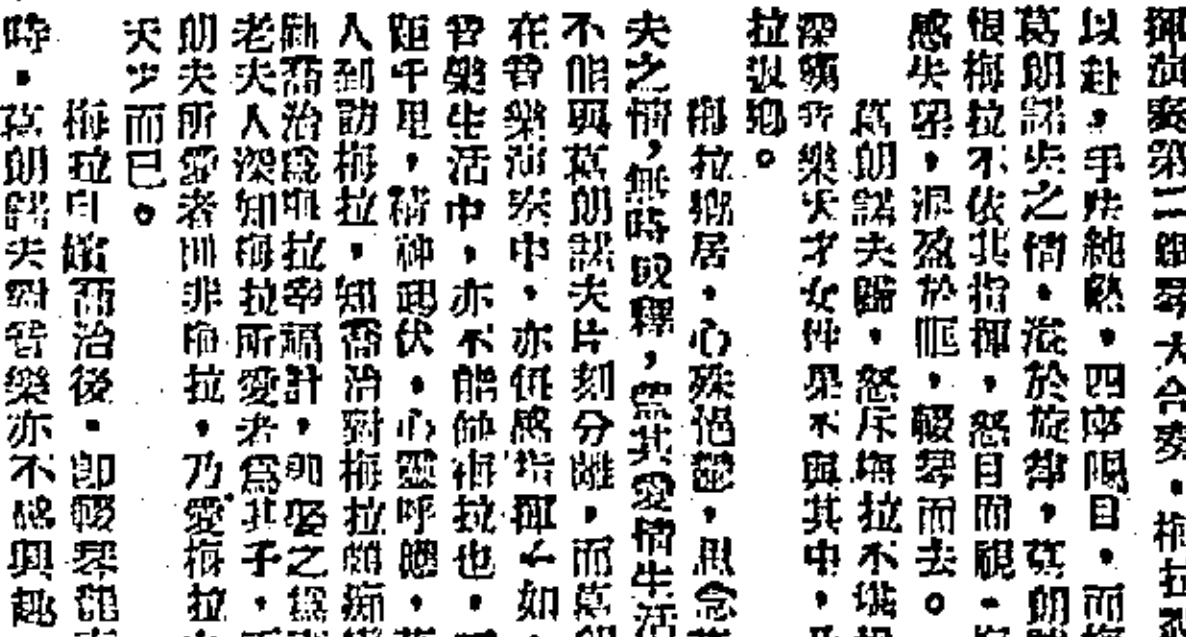 揮演奏第二鋼琴大合奏,梅拉
以赴,手法純熟,四座閉目,而
葛朗諾夫之情,溢於旋律,葛朗
恨梅拉不依北指揮,怒目而視,
感失望,淚盈於眶,輟琴而去。
葛朗諾夫歸,怒斥梅拉不
深領音樂天才女性果不與其中,
拉返鄉。
梅拉鄉居,心殊悒鬱,思念
夫之情,無時或釋,蓋其愛情生活
不能與葛朗諾夫片刻分離,而葛朗
在音樂演奏中,亦有感指揮之如
音樂生活中,亦不能缺梅拉也,
距千里,精神起伏,心靈呼應,
人到訪梅拉,知喬治對梅拉頗痴
勸喬治為梅拉幸福計,勿娶之為
老夫人深知梅拉所愛者為其子,
朗夫所愛者則非梅拉,乃愛梅拉
天才而已。
梅拉自嫁喬治後,即輟琴
時,葛朗諾夫對音樂亦不感興趣